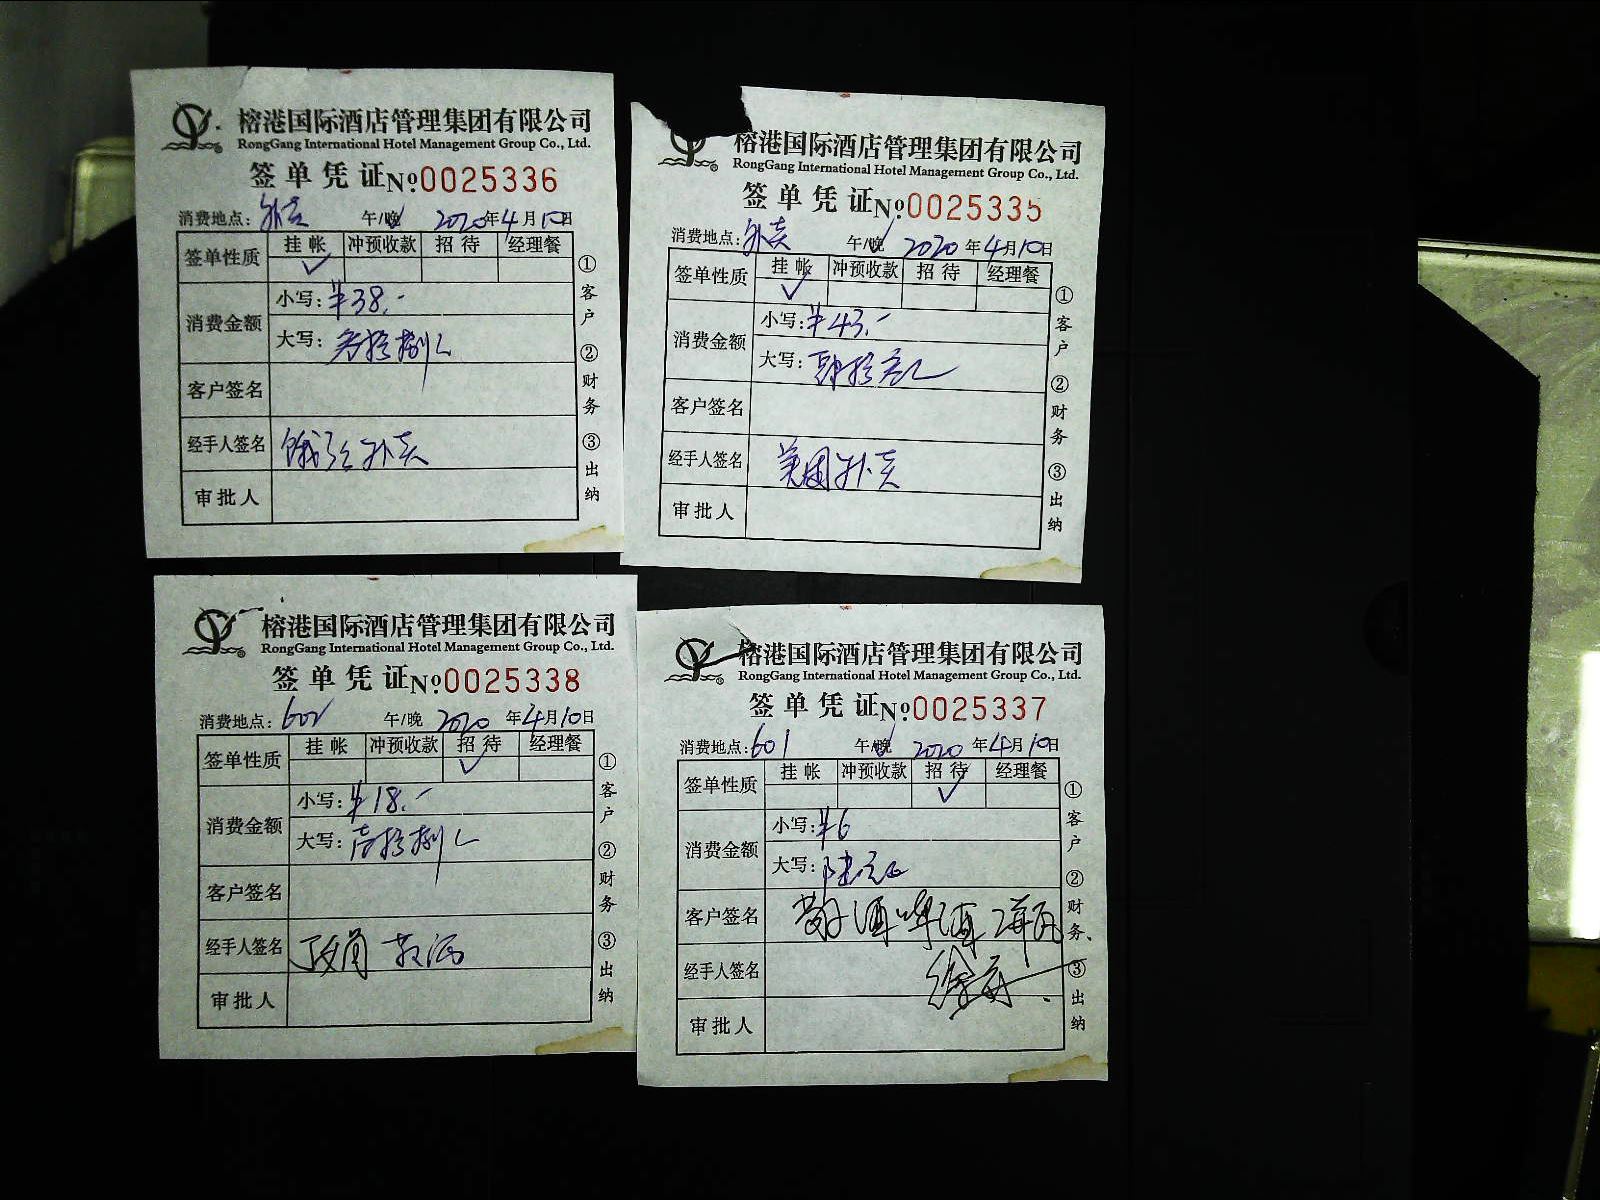 榕港国际酒店管理集团有限公司
RongGang International Hotel Management Group Co., Ltd.
签单凭证No:0025336
消费地点:外卖 午/晚 2020年4月10日
签单性质 挂帐 冲预收款 招待 经理餐
✓
消费金额
小写:¥38.-
大写:叁拾捌元
客户签名
经手人签名 饿了么外卖
审批人
①客户 ②财务 ③出纳
榕港国际酒店管理集团有限公司
RongGang International Hotel Management Group Co., Ltd.
签单凭证No:0025335
消费地点:外卖 午/晚 2020年4月10日
签单性质 挂帐 冲预收款 招待 经理餐
✓
消费金额
小写:¥43.-
大写:肆拾叁元
客户签名
经手人签名 美团外卖
审批人
①客户 ②财务 ③出纳
榕港国际酒店管理集团有限公司
RongGang International Hotel Management Group Co., Ltd.
签单凭证No:0025338
消费地点:602 午/晚 2020年4月10日
签单性质 挂帐 冲预收款 招待 经理餐
✓
消费金额
小写:¥18.-
大写:壹拾捌元
客户签名
经手人签名
审批人
①客户 ②财务 ③出纳
榕港国际酒店管理集团有限公司
RongGang International Hotel Management Group Co., Ltd.
签单凭证No:0025337
消费地点:601 午/晚 2020年4月10日
签单性质 挂帐 冲预收款 招待 经理餐
✓
消费金额
小写:¥6
大写:陆元正
客户签名
经手人签名
审批人
①客户 ②财务 ③出纳